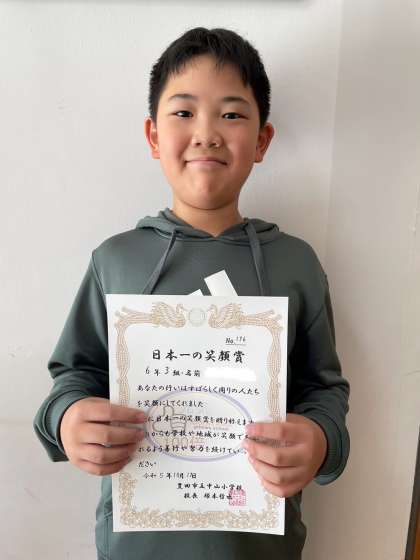 No. 176
日本一の笑顔賞
6年 3組・名前
あなたの行いはすばらしく周りの人たち
を笑顔にしてくれました
に日本一の笑顔賞を贈り称えま
からも学校や地域が笑顔で
れるよう善行や努力を続けてい
ださい
令和5年10月17日
豊田市立中山小学校
校長